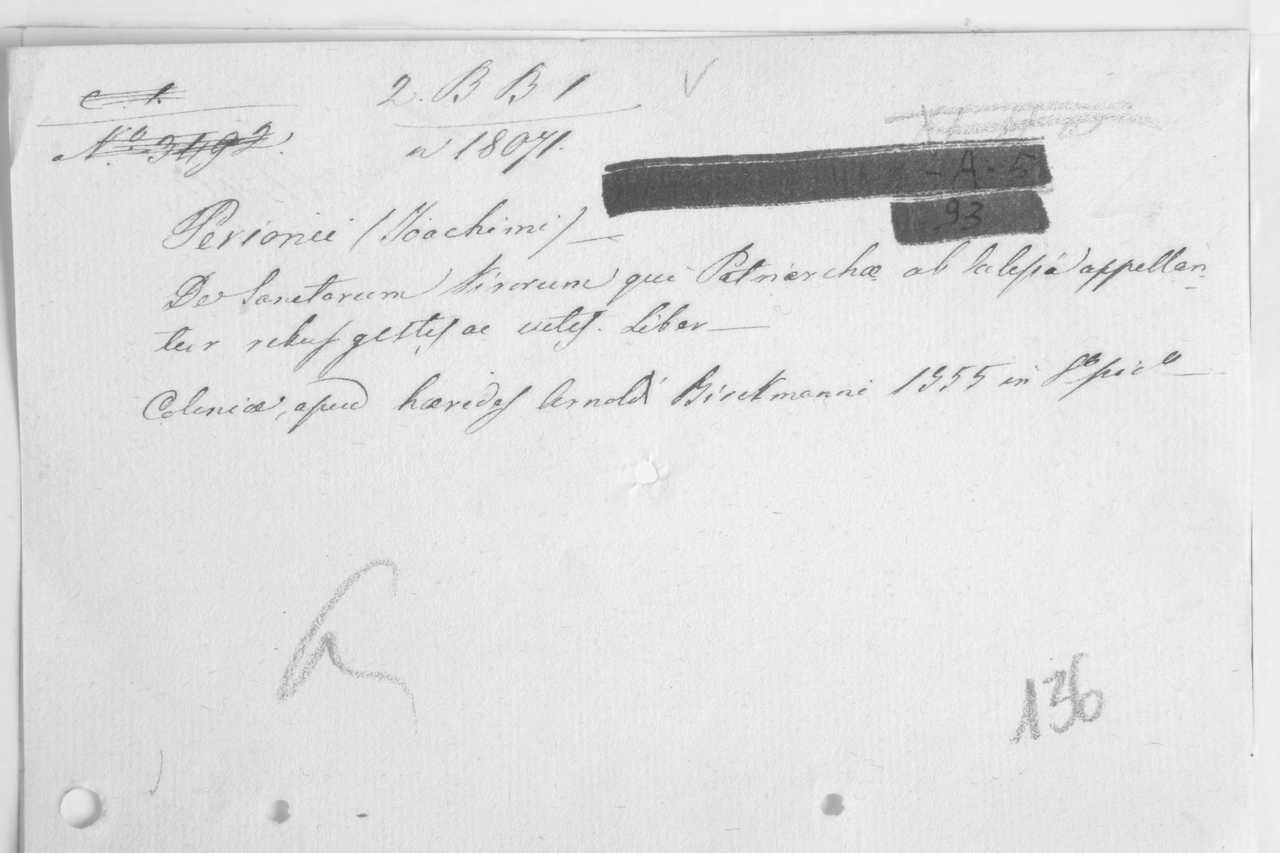 C. 1.
2. B B 1
Nº 3492.
n 18071.
-A-5
93
Perionii (Joachimi)—
De Sanctorum Virorum qui Patriarchæ ab Eclesiâ appellan-
tur rebus gestis ac vitis. Liber—
Coloniæ, apud hæredes Arnoldi Birckmanni 1555 in 8º
136